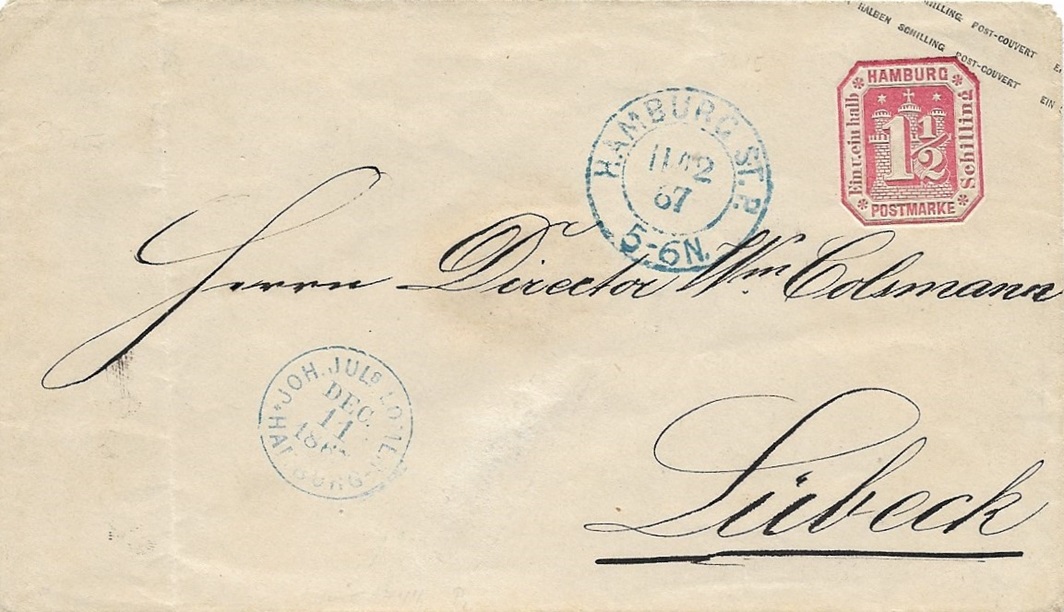 SCHILLING POST-COUVERT
HALBEN SCHILLING POST-COUVERT EIN
HAMBURG
Ein u. ein halb
1 1/2
Schilling
POSTMARKE
HAMBURG ST. P.
67
5-6N.
Herrn Director Wm Colsmann
JOH. JULS
DEC.
11
HAMBURG
Lübeck